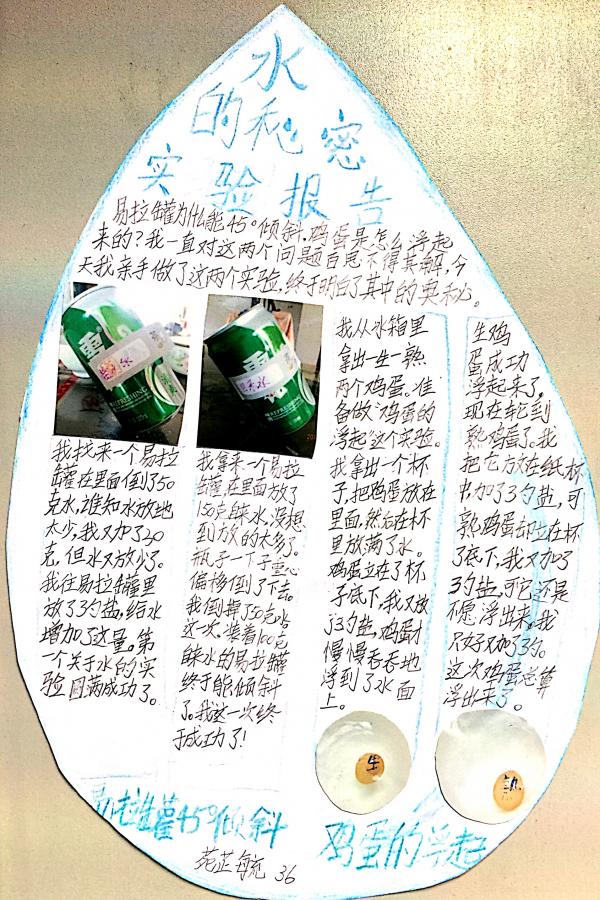 水
的秘密
实验报告
易拉罐为什么能45°倾斜,鸡蛋是怎么浮起
来的?我一直对这两个问题百思不得其解,今
天我亲手做了这两个实验,终于明白了其中的奥秘。
我找来一个易拉
罐在里面倒了50
克水,谁知水放地
太少,我又加了20
克,但水又放少了。
我往易拉罐里
放了3勺盐,给水
增加了这量。第
一个关于水的实
验圆满成功了。
我拿来一个易拉
罐,在里面放了
150克味水,没想
到放的太多了。
瓶子一下子重心
偏移倒了下去。
我倒掉了50克
这一次,装着100克
味水的易拉罐
终于能倾斜
了。我这一次终
于成功了!
我从冰箱里
拿出一生一熟
两个鸡蛋。准
备做“鸡蛋的
浮起”这个实验。
我拿出一个杯
子,把鸡蛋放在
里面,然后在杯
里放满了水。
鸡蛋立在了杯
子底下,我又放
了3勺盐,鸡蛋才
慢慢吞吞地
浮到了水面
上。
生鸡
蛋成功
浮起来了,
现在轮到
熟鸡蛋了。我
把它放在纸杯
中,加了3勺盐,可
熟鸡蛋却立在杯
了底下,我又加了
3勺盐,可它还是
不愿浮出来。我
只好又加了3勺。
这次鸡蛋总算
浮出来了。
生
熟
易拉罐45°倾斜
鸡蛋的浮起
36